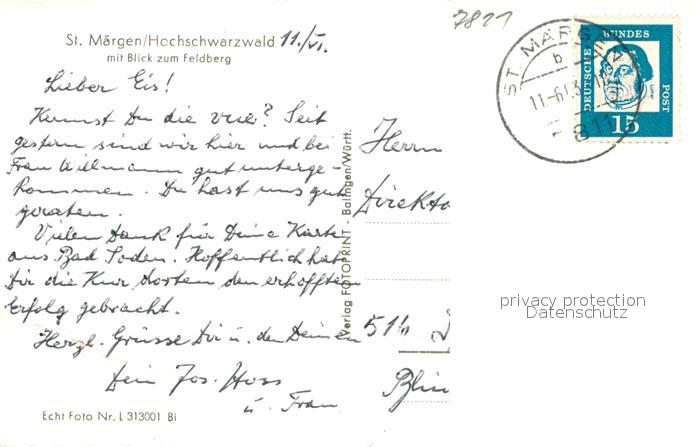 7811
St. Märgen/Hochschwarzwald 11./VI.
mit Blick zum Feldberg
Lieber Eis!
Kennst Du die vue? Seit
gestern sind wir hier und bei
Frau Willmann gut unterge-
kommen. Du hast uns gut
geraten.
Vielen Dank für Deine Karte
aus Bad Soden. Hoffentlich hat
Dir die Kur dorten den erhofften
Erfolg gebracht.
Herzl. Grüsse Dir u. den Deinen
Dein Jos. Hoss
u. Frau
Echt Foto Nr. L 313001 Bi
Verlag FOTOPRINT - Balingen/Württ.
Herrn
Direkto
516
Blin
ST. MÄRGEN
b
11.-6.63
7811
DEUTSCHE BUNDES POST
15
privacy protection
Datenschutz